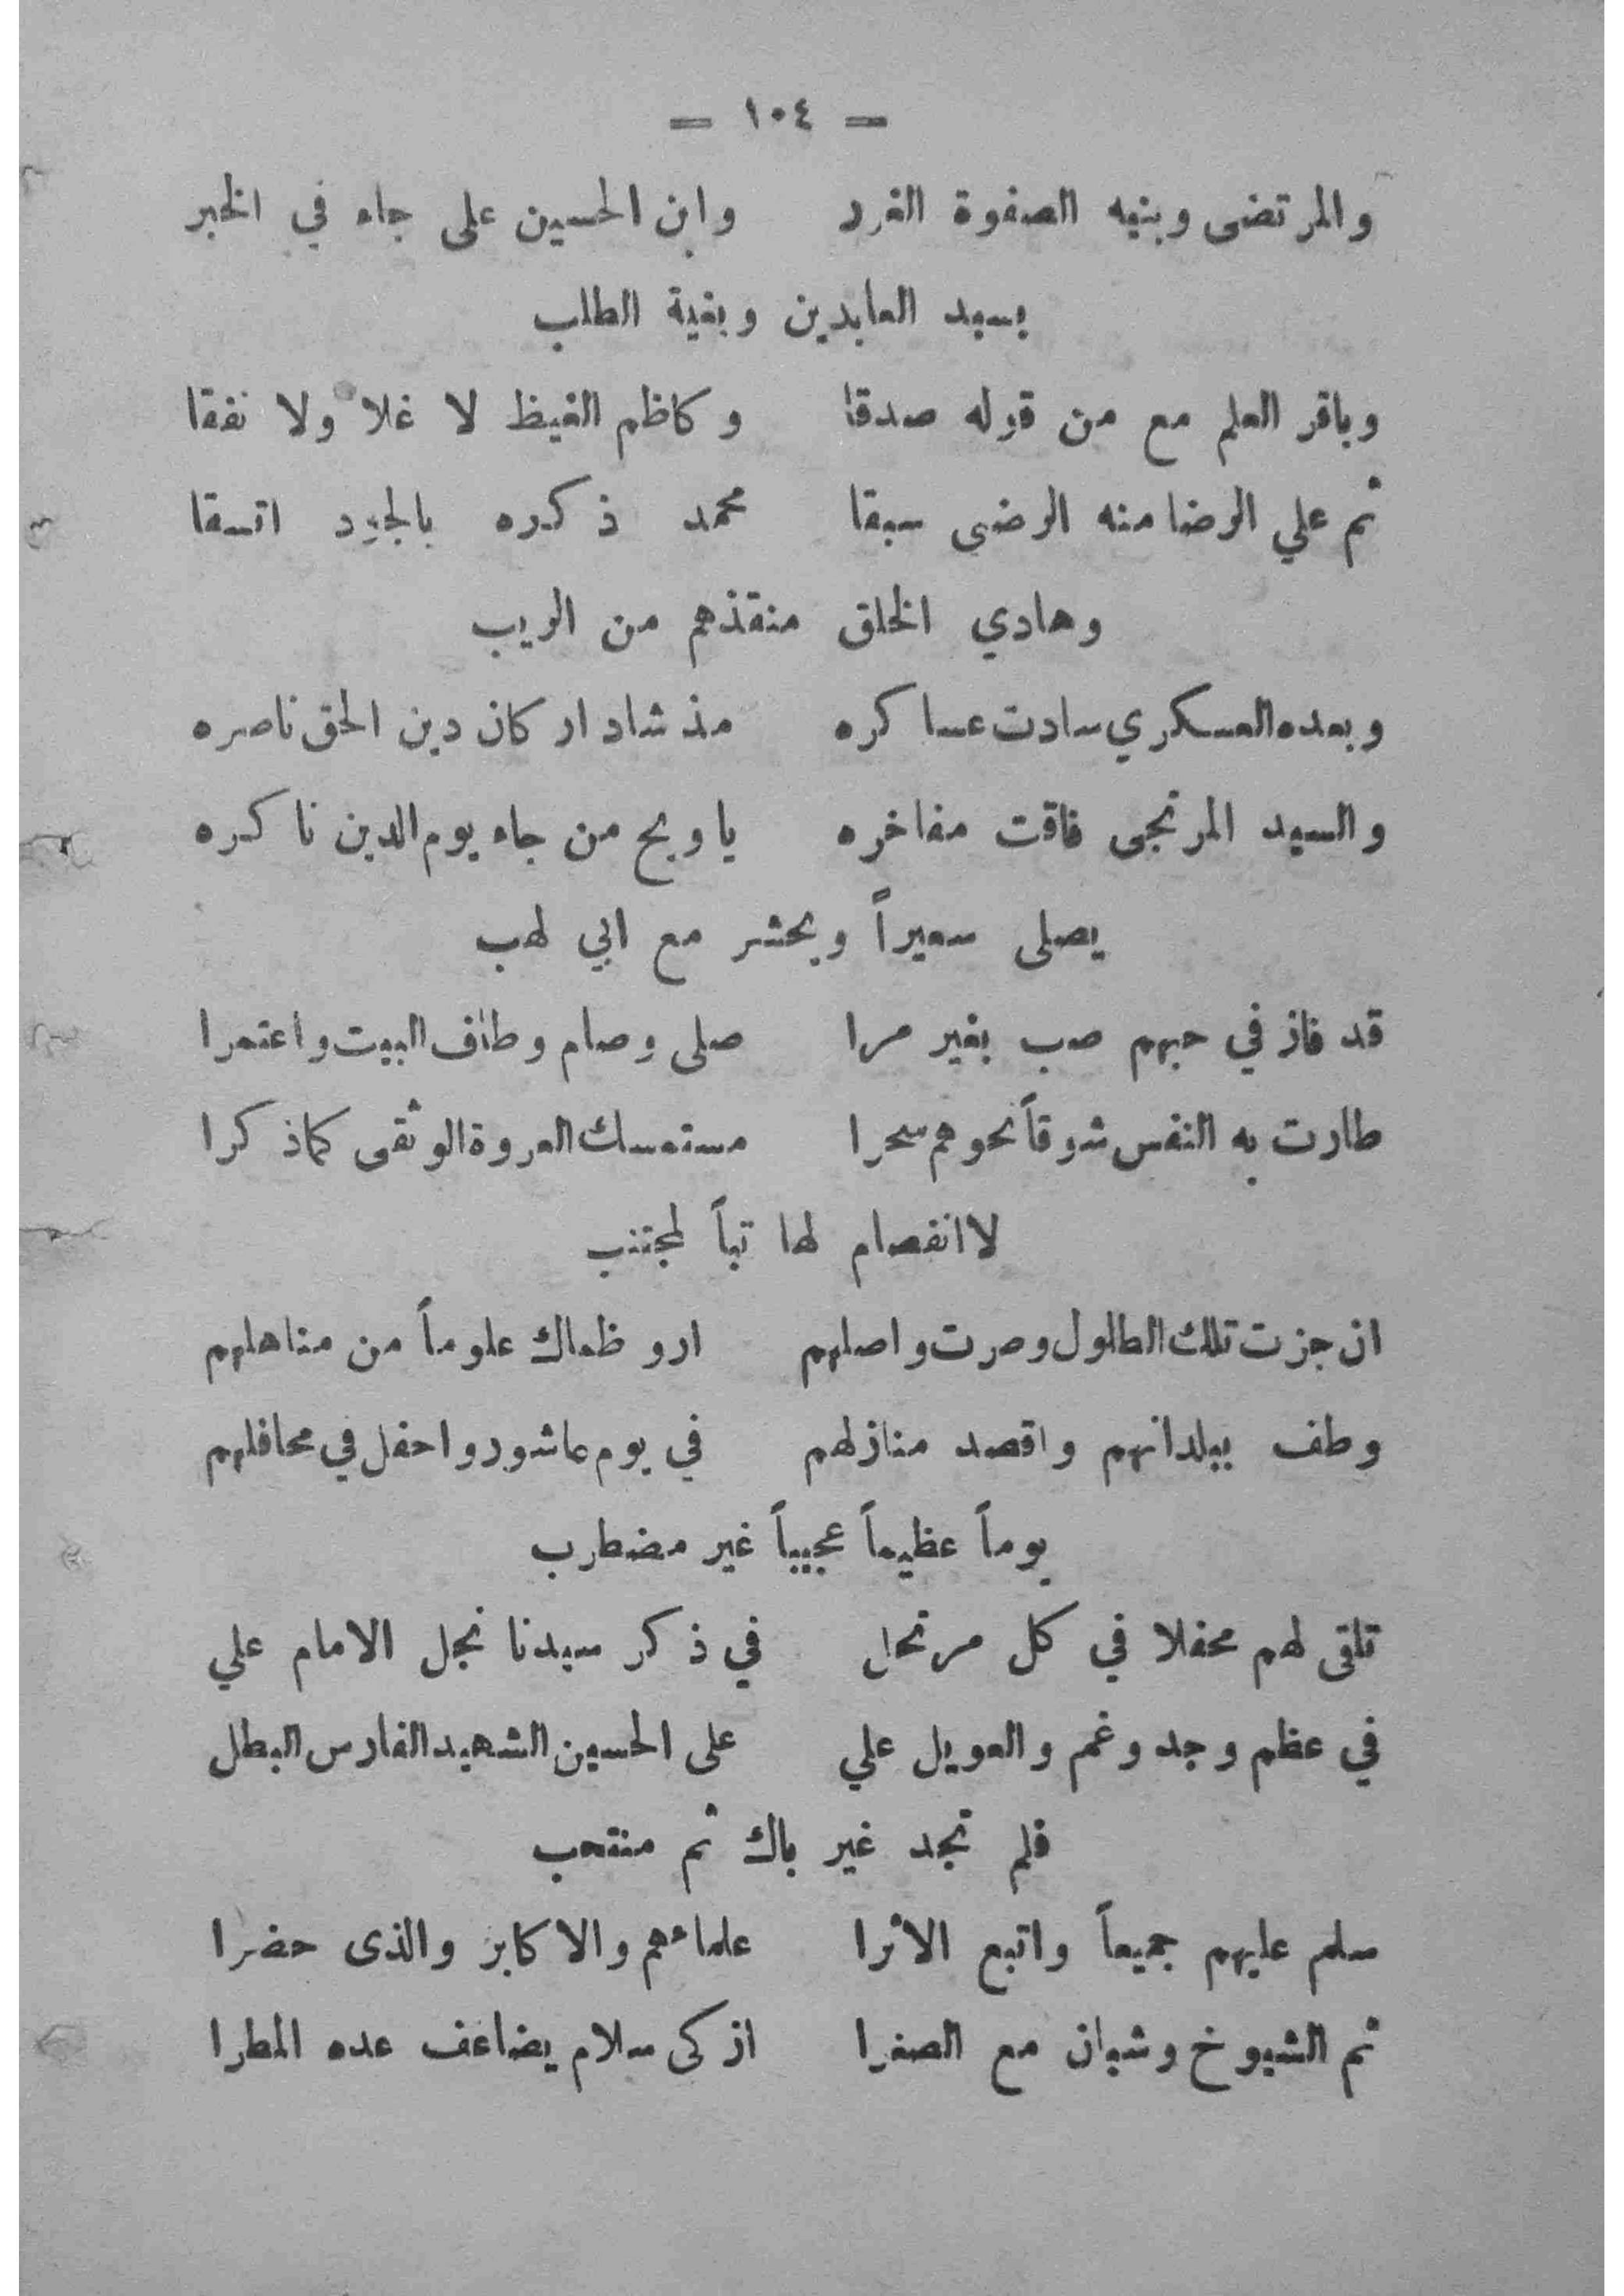 — ١٠٤ —
والمرتضى وبنيه الصفوة الغرر وابن الحسين على جاء في الخبر
بسيد العابدين وبغية الطلب
وباقر العلم مع من قوله صدقا وكاظم الغيظ لا غلا ولا نفقا
ثم علي الرضا منه الرضى سبقا محمد ذكره بالجود اتسقا
وهادي الخلق منقذهم من الريب
وبعده العسكري سادت عساكره مذ شاد اركان دين الحق ناصره
والسيد المرتجى فاقت مفاخره ياويح من جاء يوم الدين ناكره
يصلى سعيراً ويحشر مع ابي لهب
قد فاز في حبهم صب بغير مرا صلى وصام وطاف البيت واعتمرا
طارت به النفس شوقاً نحوهم سحرا مستمسك العروة الوثقى كما ذكرا
لا انفصام لها تباً لمجتنب
ان جزت تلك الطلول وصرت واصلهم ارو ظماك علوماً من مناهلهم
وطف ببلدانهم واقصد منازلهم في يوم عاشور واحفل في محافلهم
يوماً عظيماً عجيباً غير مضطرب
تلقى لهم محفلا في كل مرتحل في ذكر سيدنا نجل الامام علي
في عظم وجد وغم والعويل علي على الحسين الشهيد الفارس البطل
فلم تجد غير باك ثم منتحب
سلم عليهم جميعاً واتبع الاثرا علماءهم والاكابر والذى حضرا
ثم الشيوخ وشبان مع الصغرا ازكى سلام يضاعف عده المطرا